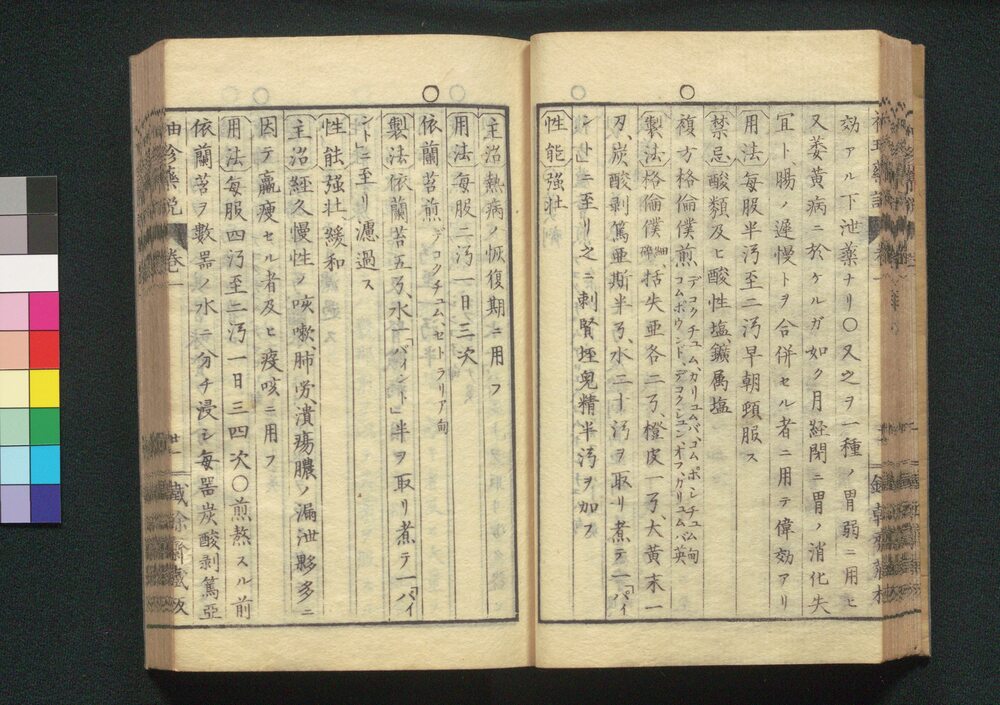 効アル下泄薬ナリ〇又之ヲ一種ノ胃弱ニ用ヒ
又萎黄病ニ於ケルガ如ク月経閉ニ胃ノ消化失
冝ト、腸ノ遅慢トヲ合併セル者ニ用テ偉効アリ
用法 毎服半汮至二汮早朝頓服ス
禁忌 酸類及ヒ酸性塩、鑛属塩
複方格倫僕煎 デコクチユム、カリユムバ、コムポシチユム甸 コムポウンド、デコクシユン、オフ、カリユムバ英
製法 格倫僕 細碎 括失亜各二ㄋ、橙皮一ㄋ、大黄末一
刄、炭酸剥篤亜斯半ㄋ、水二十汮ヲ取リ煮テ一「パイ
ント」ニ至リ之ニ刺賢埵皃精半汮ヲ加フ
性能 強壮
主治 熱病ノ恢復期ニ用フ
用法 毎服二汮一日三次
依蘭苔煎 デコクチユム、セトラリア甸
製法 依蘭苔五ㄋ、水一「パイント」半ヲ取リ煮テ一「パイ
ント」ニ至リ濾過ス
性能 強壮、緩和
主治 経久慢性ノ咳嗽肺労、潰瘍膿ノ漏泄夥多ニ
因テ羸痩セル者及ヒ疫咳ニ用フ
用法 毎服四汮至二汮一日三四次〇煎熬スル前
依蘭苔ヲ數器ノ水ニ分チ浸シ毎器炭酸剥篤亞
袖珍藥説 巻一 廿一